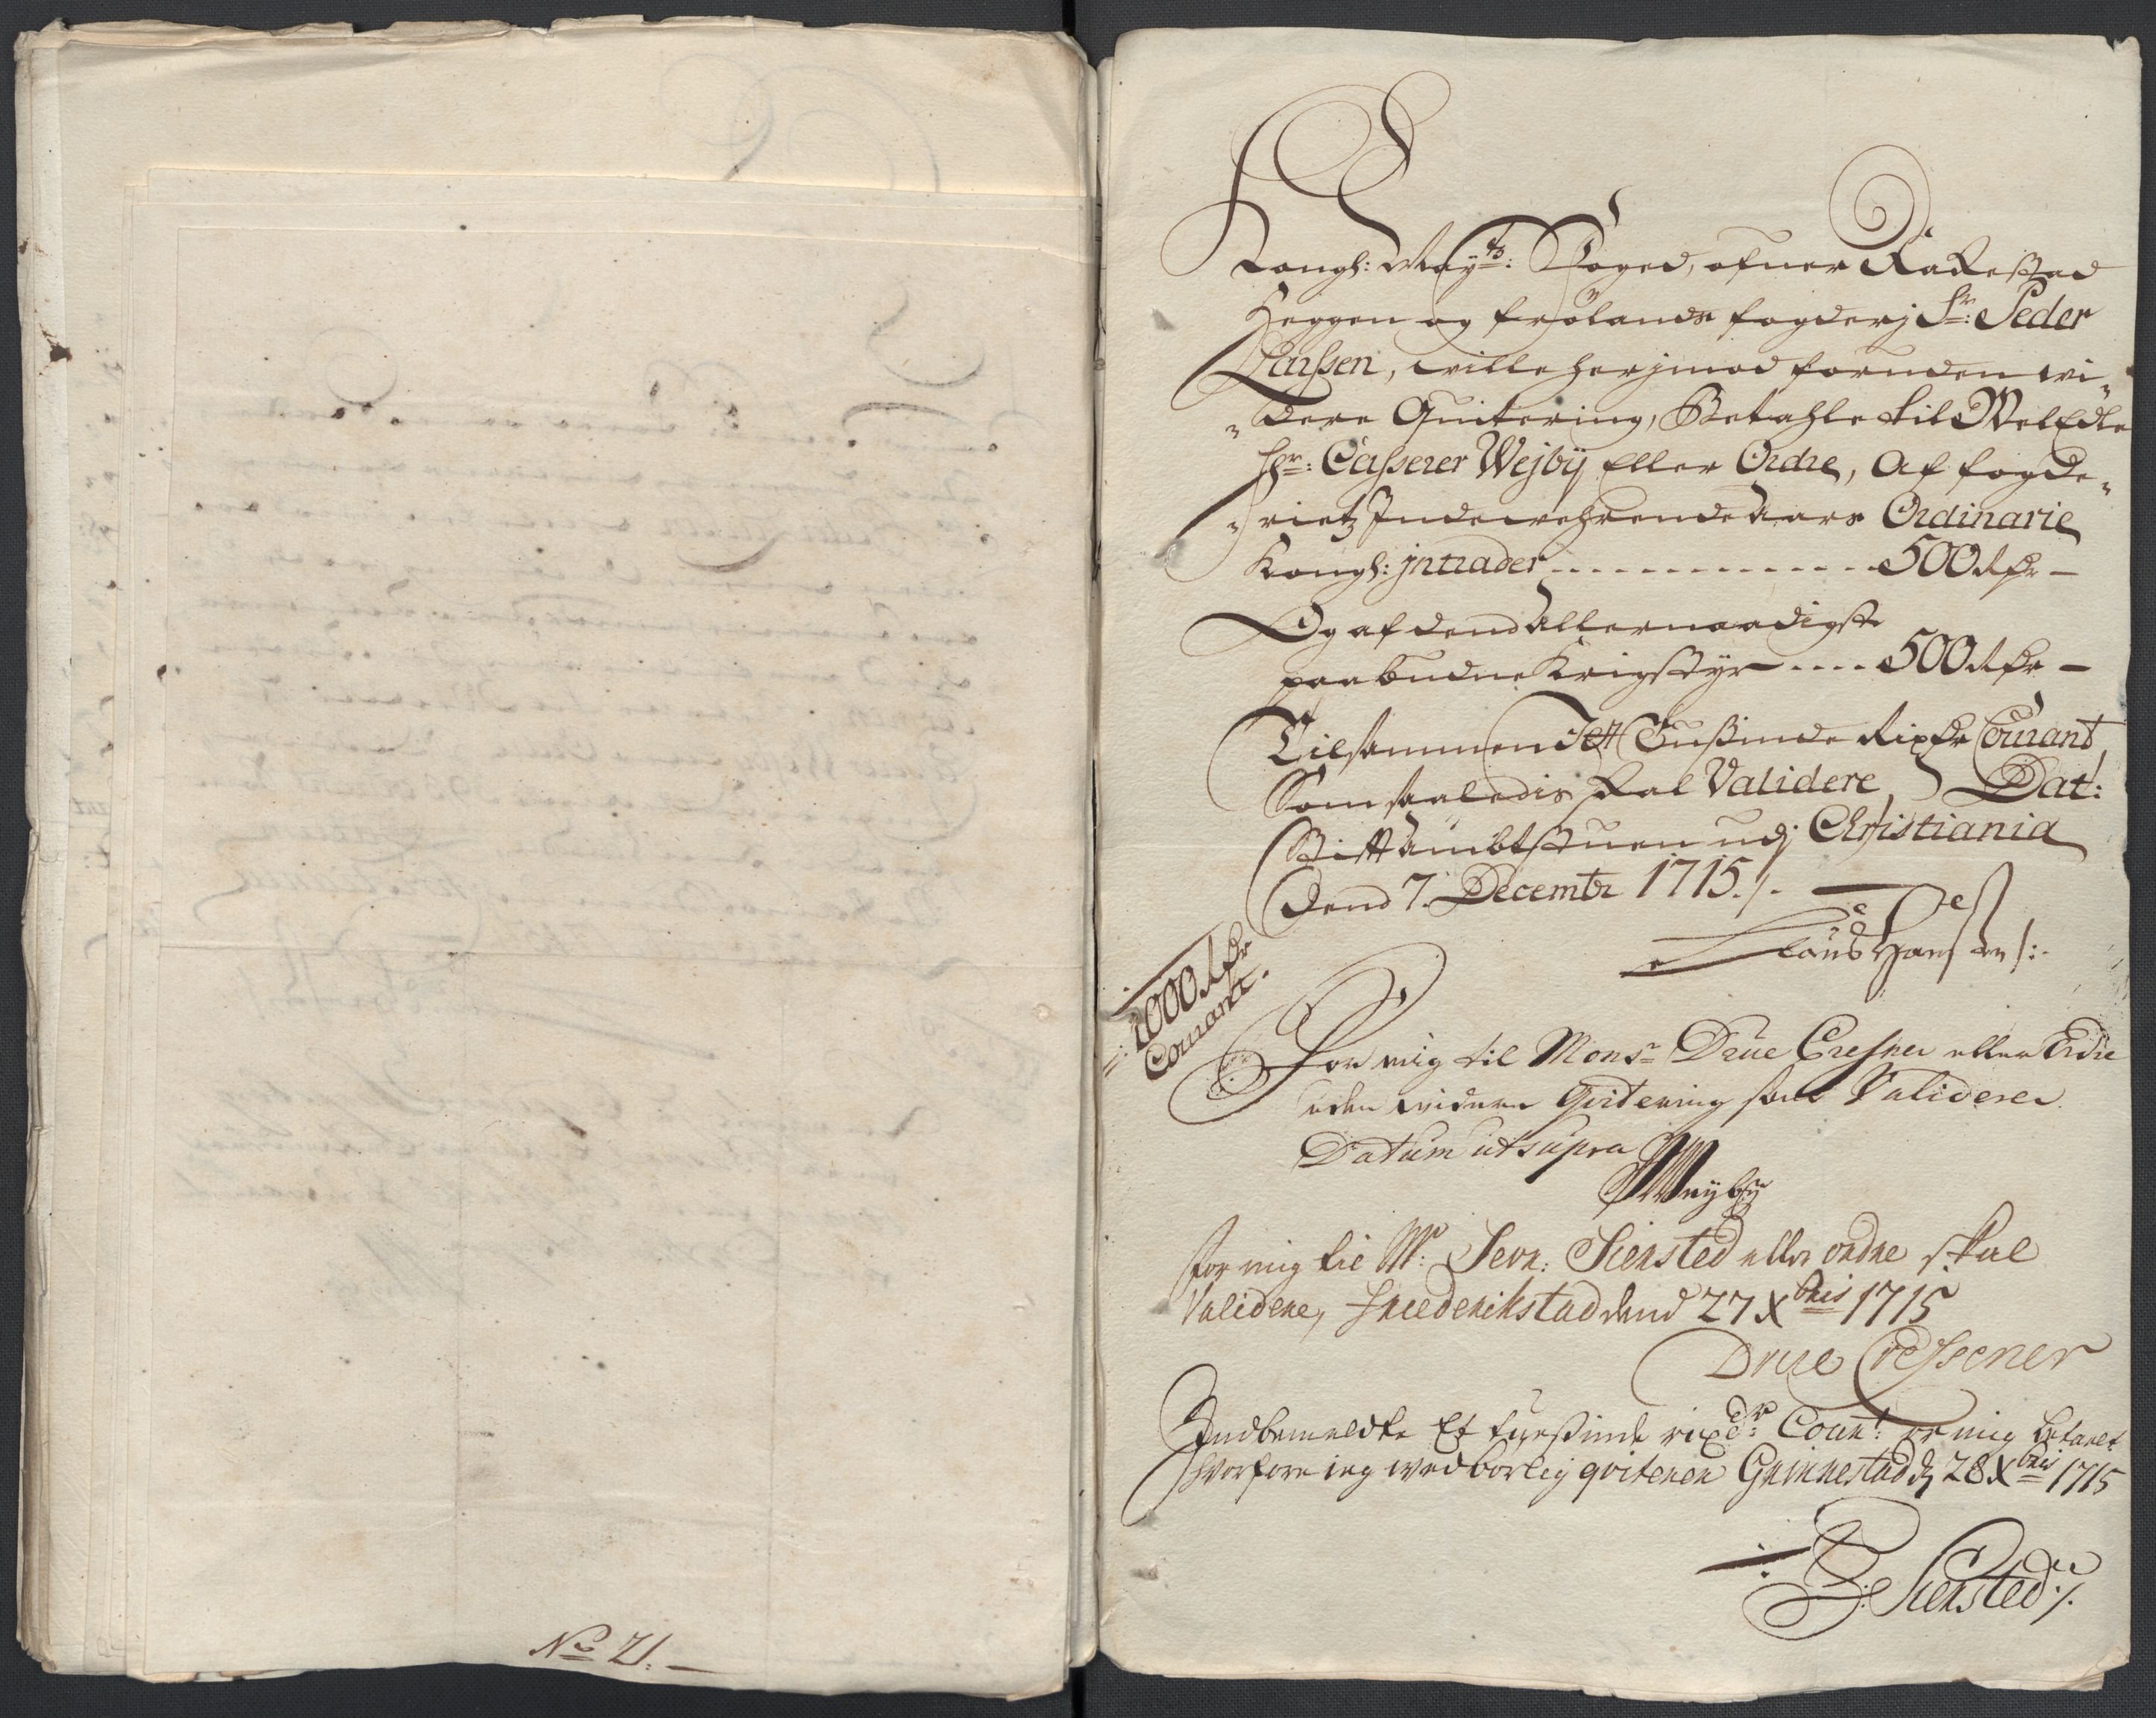 No 21.
Kongl: Maytz: Foged, ofuer Rakestad
Heggen og Frølands fogderj Sr: Peder
Claussen, wille herjmod foruden wi„
„dere Quitering, Betahle til WelEdle
Hr: Casserer Wejbÿ Eller Ordre, Af fogde„
„rietz Indewehrende Aars Ordinarie
Kongl: jntrader ............ 500 Rdr –
Og af dend Allernaadigste
paabudne Krigstÿr .... 500 Rdr –
Tilsammen Et Tusinde Rixdr Courant,
Som saaledis skal Validere, Dat:
Stift Ambtstuen udj Christiania
Dend 7. Decembr 1715./.
Claus Hanssen /:
1000 Rdr
Courantt.
For mig til Monsr Drue Cresner eller Ordre
uden widere Qvitering som Validerer.
Datum ut supra
Weybÿ
for mig til Mr: Sevr: Siensted eller ordre skal
Validere, Freederikstad dend 27 Xbris 1715
Drue Cressener
Indbemeldte Et tusinde rixdr: Court: er mig betalt
hvorfore ieg wedborlig qviterer Grimmestad d. 28 Xbris 1715
S: Siensted ./.